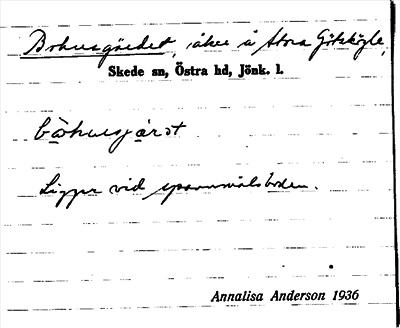 Bohusgärdet, åker å Stora Götskögle,
Skede sn, Östra hd, Jönk. l.
bòhusjárdt
Ligger vid spannmålsboden.
Annalisa Anderson 1936